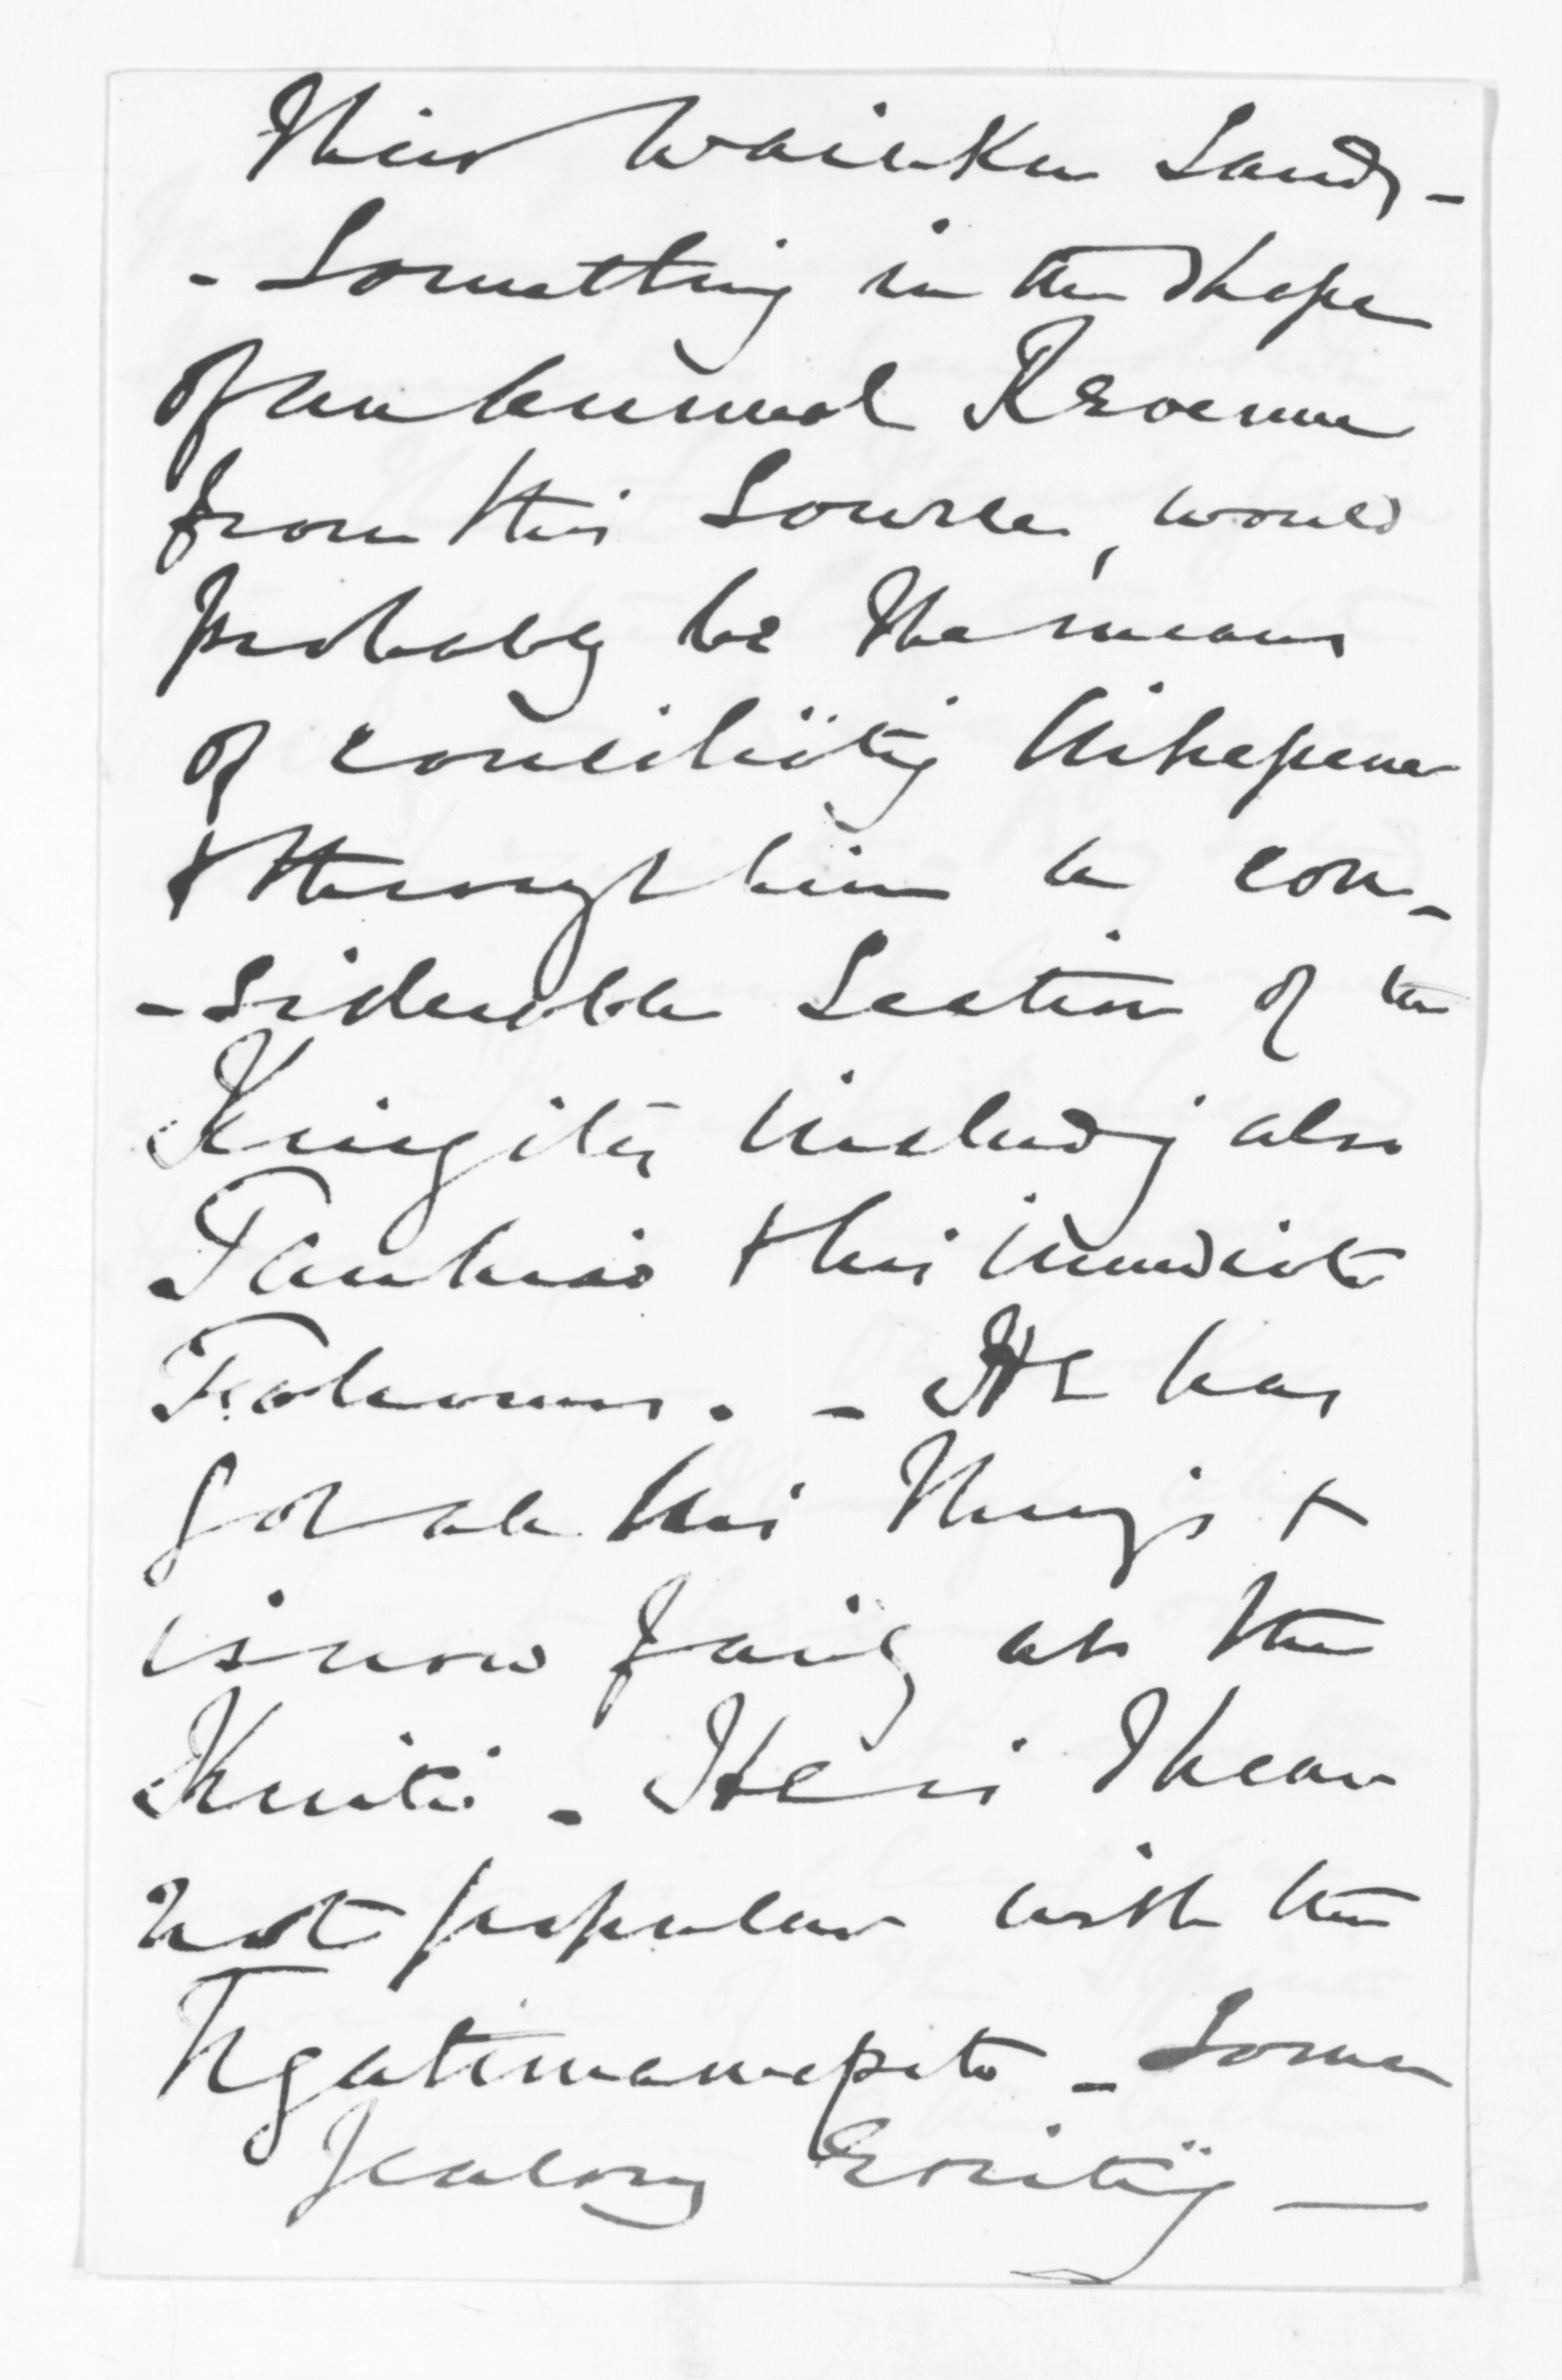 their Waiuku Lands -
- Something in the shape
of an Annual Revenue
from this Source, would
probably be the means
of conciliating
& through him a con-
- siderable Section of the
Kingites including also
Tawhiao & his immediate
Followers. - He has
got all his things &
is now fairly at the
Kuiti - He is I hear
not popular with the
Ngatimaniapoto - Some
Jealousy Existing —